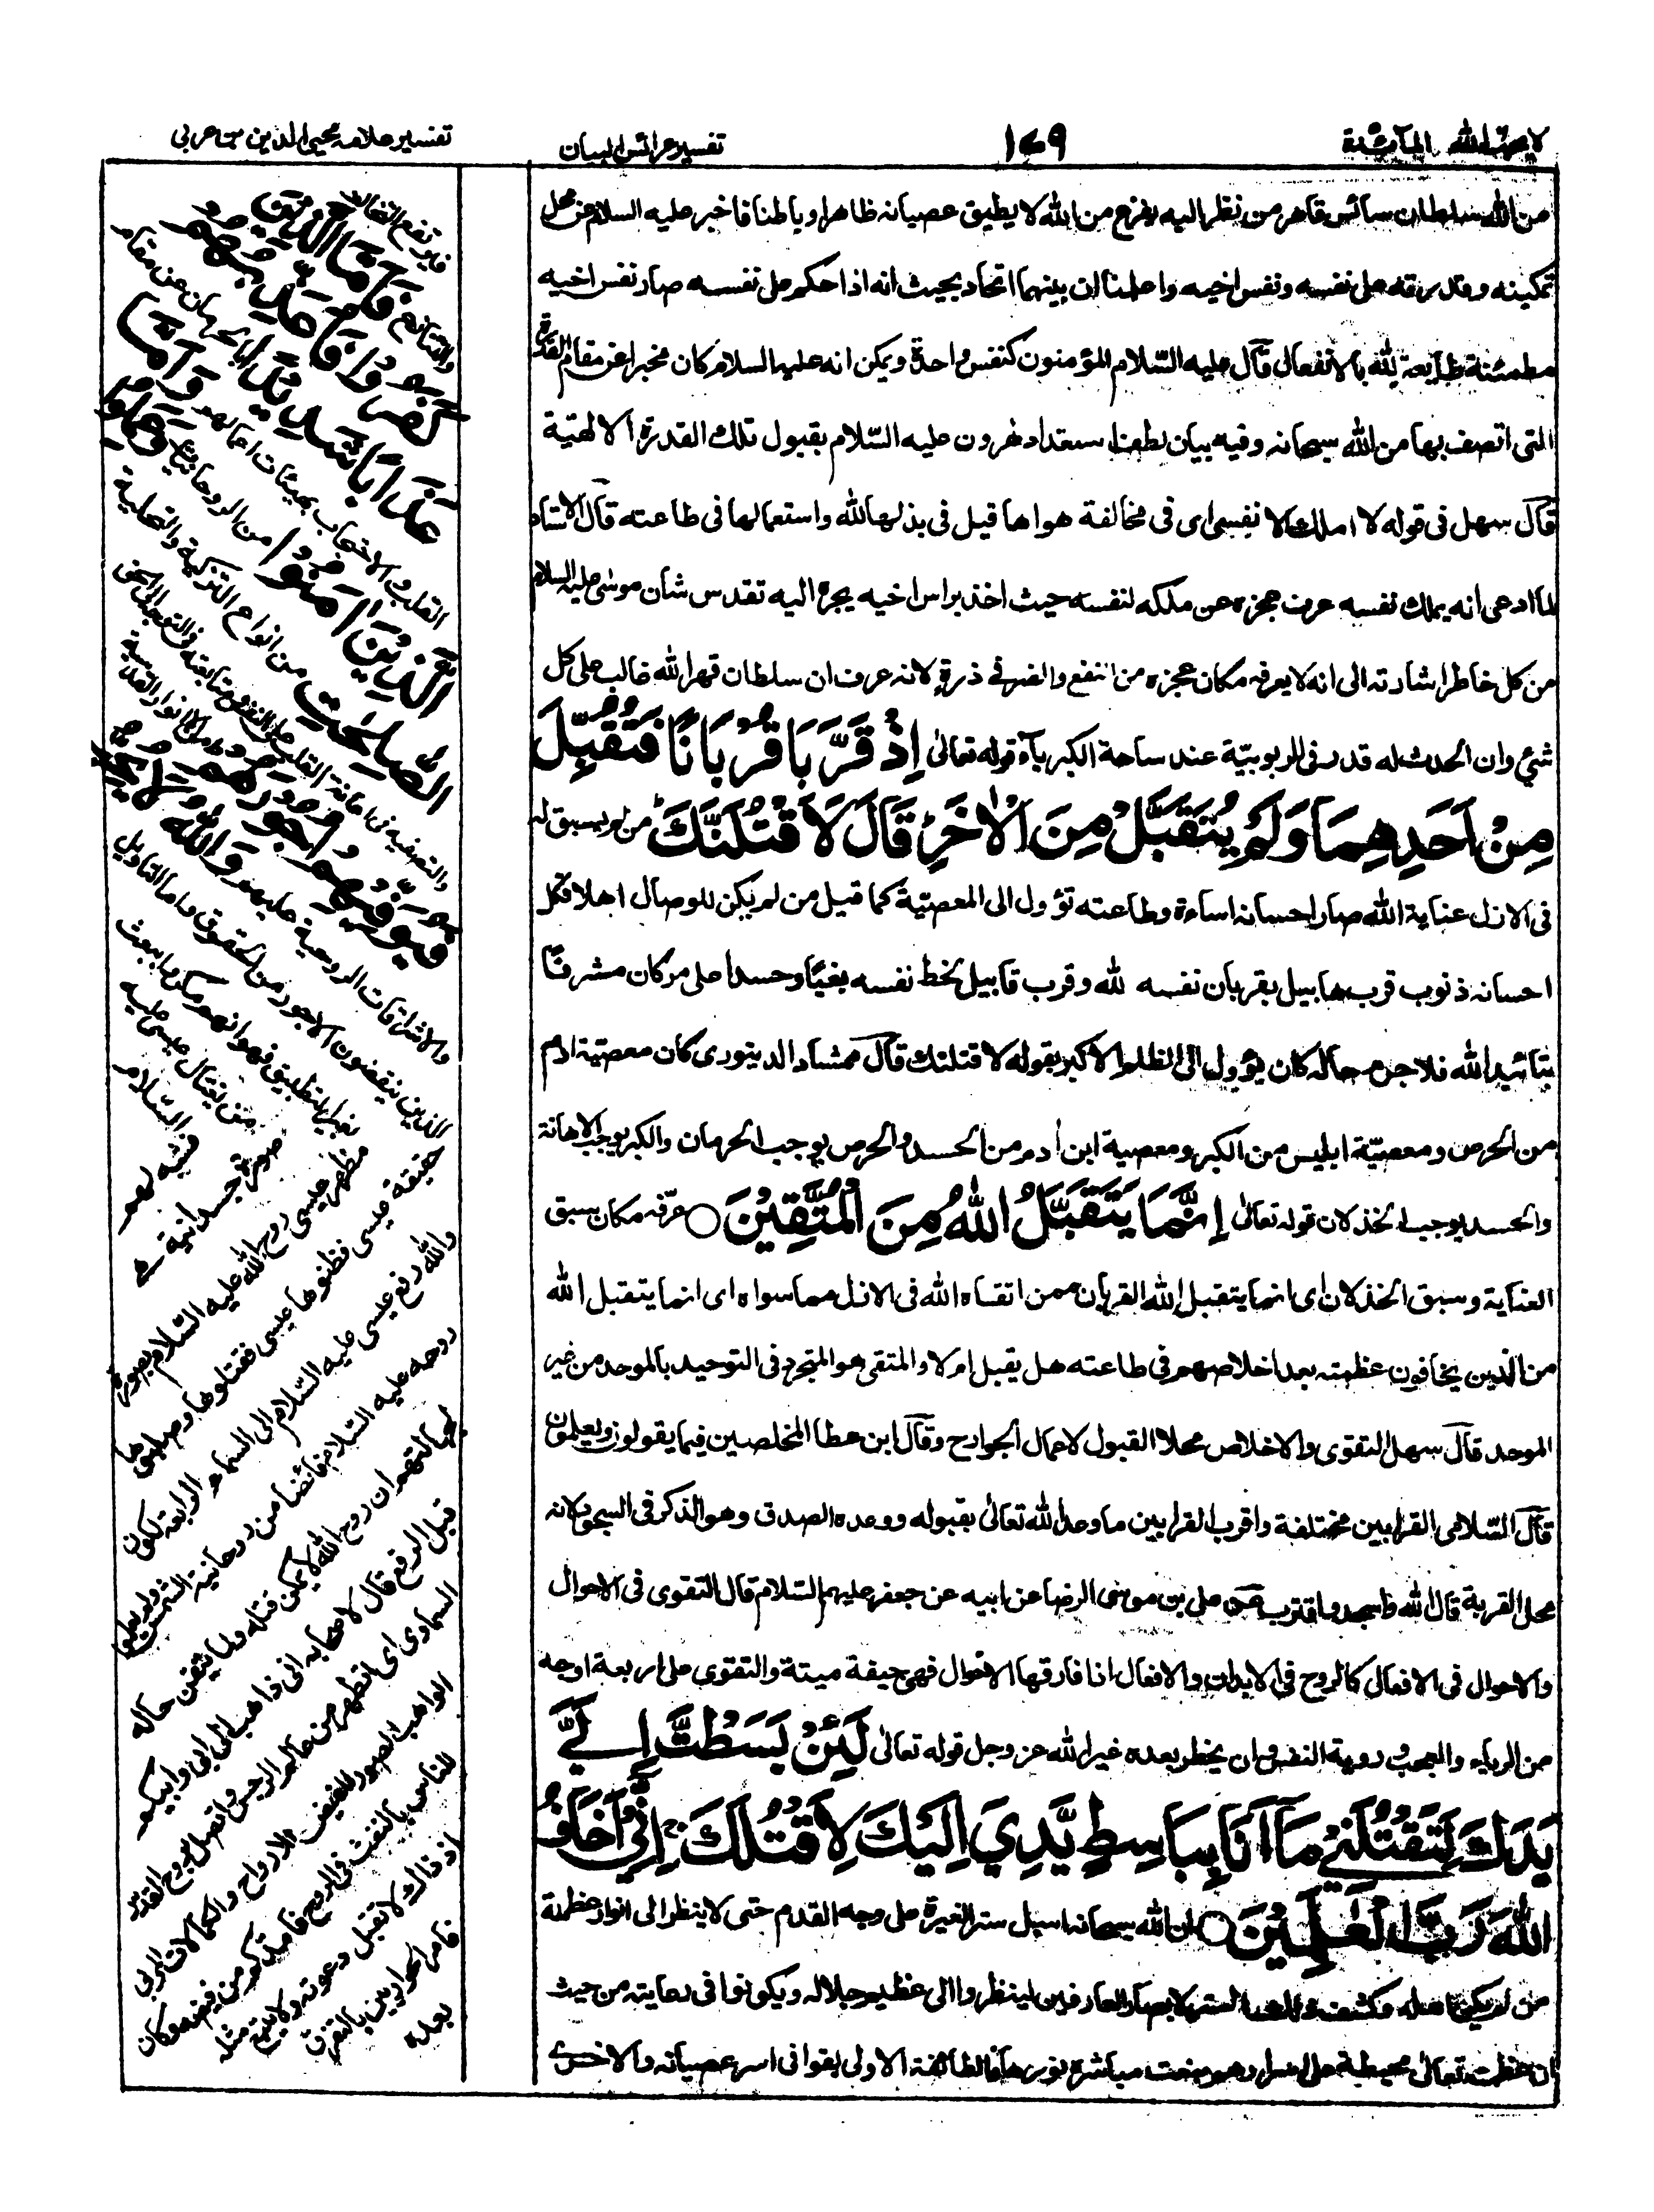 لا يحب الله المآئدة
١٧٩
تفسير عرائس البيان
تفسير علامه محيى الدين بن عربى
من الله سلطان سائس قاهر من نظر اليه يفزع من الله لا يطيق عصيانه ظاهرا وباطنا فاخبر عليه السلام عن محل
تمكينه وقدرته على نفسه ونفس اخيه واعلمنا ان بينهما اتحاد بحيث انه اذا حكم على نفسه صار نفس اخيه
مطمئنة طائعة لله بالانفعال قال عليه السّلام المؤمنون كنفس واحدة ويمكن انه عليه السلام كان مخبرا عن مقام القدرة
التى اتصف بها من الله سبحانه وفيه بيان استعداد هرون عليه السّلام بقبول تلك القدرة الالهيّة
قال سهل فى قوله لا املك الا نفسى اى فى مخالفة هواها قيل فى بذلها لله واستعمالها فى طاعته قال الاستاد
لما ادعى انه يملك نفسه عرف عجزه عن ملكه لنفسه حيث اخذ براس اخيه يجره اليه تقدس شان موسى عليه السلام
من كل خاطر اشارته الى انه لا يعرفه مكان عجزه من النفع والضر فى ذرة لانه عرف ان سلطان قهر الله غالب على كل
شئ وان الحدث له قدر فى الربوبيّة عند ساحة الكبرياء قوله تعالىٰ اِذْ قَرَّبَا قُرْبَانًا فَتُقُبِّلَ
مِنْ اَحَدِهِمَا وَلَمْ يُتَقَبَّلْ مِنَ الْاٰخَرِ قَالَ لَاَقْتُلَنَّكَ من لم يسبق له
فى الازل عناية الله صار احسانه اساءة وطاعته تؤول الى المعصيّة كما قيل من لم يكن للوصال اهلا فكل
احسانه ذنوب قرب هابيل بقربان نفسه لله وقرب قابيل لحظ نفسه بغيًا وحسدا على من كان مشرفًا
بتائيد الله فلا جرم حاله كان يؤول الى الظلم الاكبر بقوله لاقتلنك قال ممشاد الدينورى كان معصية ادم
من الحرص ومعصيّة ابليس من الكبر ومعصية ابن ادم من الحسد والحرص يوجب الحرمان والكبر يوجب الاهانة
والحسد يوجب الخذلان قوله تعالىٰ اِنَّمَا يَتَقَبَّلُ اللّٰهُ مِنَ الْمُتَّقِيْنَ ○ عرّفه مكان سبق
العناية وسبق الخذلان اى انما يتقبل الله القربان ممن اتقاه الله فى الازل مما سواه اى انما يتقبل الله
من الذين يخافون عظمته بعد اخلاصهم فى طاعته هل يقبل ام لا والمتقى هو المتجرد فى التوحيد بالموحد من غير
الموحد قال سهل التقوى والاخلاص محلا القبول لاعمال الجوارح وقال ابن عطا المخلصين فيما يقولون ويعلمون
قال السّلامى القرابين مختلفة واقرب القرابين ما وعد الله تعالى بقبوله ووعده الصدق وهو الذكر فى السجود لانه
محل القربة قال الله واسجد واقترب عن على بن موسى الرضا عن ابيه عن جعفر عليهم السّلام قال التقوى فى الاحوال
والاحوال فى الافعال كالروح فى الابدان والافعال اذا فارقها الاحوال فهى جيفة ميتة والتقوى على اربعة اوجه
من الرياء والعجب ورؤية النفس وان يخطر بعده غير الله عز وجل قوله تعالىٰ لَئِنْ بَسَطْتَّ اِلَىَّ
يَدَكَ لِتَقْتُلَنِىْ مَآ اَنَا بِبَاسِطٍ يَّدِىَ اِلَيْكَ لِاَقْتُلَكَ ج اِنِّىْ اَخَافُ
اللّٰهَ رَبَّ الْعٰلَمِيْنَ ○ ان الله سبحانه اسبل ستر الغيرة على وجه القدم حتى لا ينظر الى انوار عظمة
من لم يكن اهله وكشف ذلك الستر لابصار العارفين لينظروا الى عظيم جلاله ويكونوا فى رعايته من حيث
ان عظمت تعالى محيطة على اسرارهم ومنعت مباشرة نورها الطائفة الاولى بقوا فى اسر عصيانه والاخرى
فَاَمَّا الَّذِيْنَ
كَفَرُوْا فَاُعَذِّبُهُمْ
عَذَابًا شَدِيْدًا بالحرمان عن مقام
القلب والاحتجاب بهيئات اعمالهم وَاَمَّا
الَّذِيْنَ اٰمَنُوْا من الروحانيين وَعَمِلُوا
الصّٰلِحٰتِ من انواع التزكية والتحلية
والتصفية فى اعانة القلب على النفس ومتابعته فى التوجه الى الحق
فَيُوَفِّيْهِمْ اُجُوْرَهُمْ من الانوار القدسية
والاشراقات الروحية عليهم وَاللّٰهُ لَا يُحِبُّ
الذين ينقصون الاجور من الحقوق واما التاويل
بغير التطبيق فهو انهم مكروا ببعث
من يغتال عيسى عليه
السّلام
فشبه لهم
صورة جسدانية هى
مظهر عيسى روح الله عليه السّلام بصورة
حقيقة عيسى فظنوها عيسى فقتلوها وصلبوها
والله رفع عيسى عليه السّلام الى السماء الرابعة لكون
روحه عليه السّلام فائضا من روحانية الشمس ولم يعلموا
لجهالتهم ان روح الله لا يمكن قتله ولما تيقن حاله
قبل الرفع قال لاصحابه انى ذاهب الى ابى وابيكم
السماوى اى اتطهر من عالم الرجس واتصل بروح القدس
الواهب الصور المفيض الارواح والكمالات المربى
للناس بالنفث فى الروع فامدكم من فيضه وكان
اذ ذاك لا تقبل دعوته ولا يتبع مثله
فامر الحواريين بالتفرق
بعده